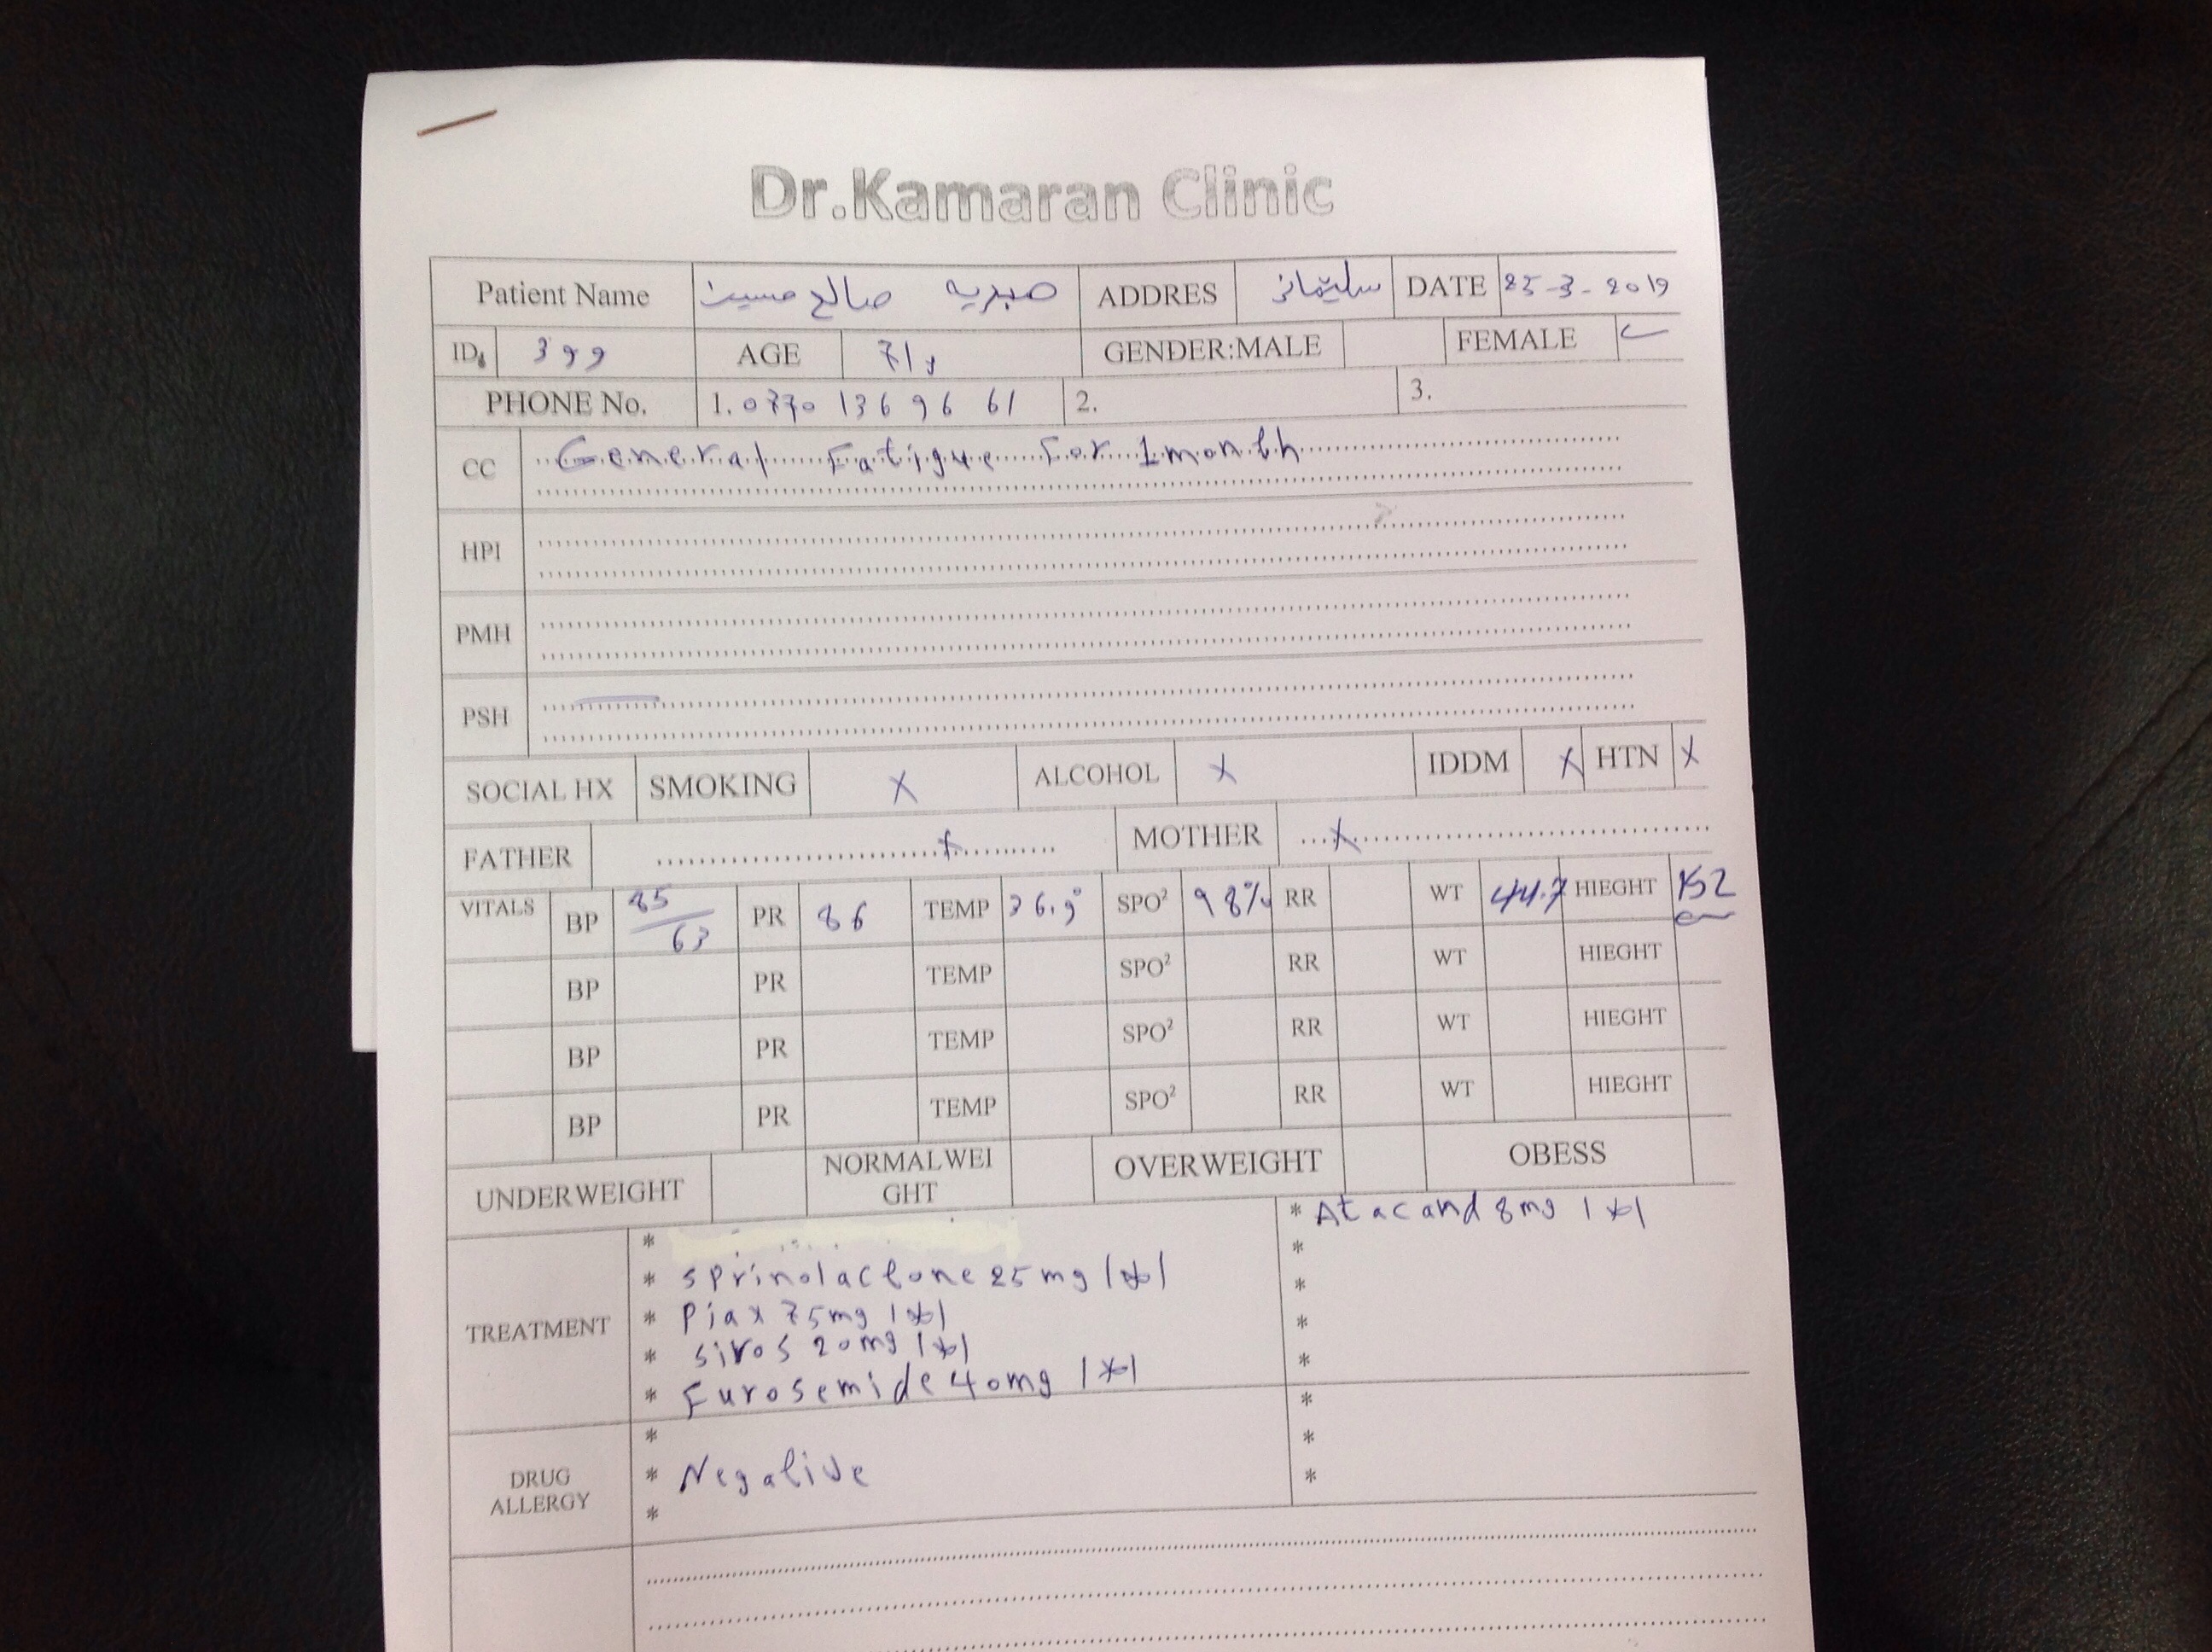 Dr.Kamaran Clinic
Patient Name صبریه صالح حسین ADDRES سلیمانی DATE 25-3-2019
ID 399 AGE 71y GENDER:MALE FEMALE ✓
PHONE No. 1. 0770 136 96 61 2. 3.
CC General Fatigue For 1month
HPI
PMH
PSH
SOCIAL HX SMOKING X ALCOHOL X IDDM X HTN X
FATHER X MOTHER X
VITALS BP 85/63 PR 86 TEMP 36.9° SPO² 98% RR WT 44.7 HIEGHT 152
BP PR TEMP SPO² RR WT HIEGHT
BP PR TEMP SPO² RR WT HIEGHT
BP PR TEMP SPO² RR WT HIEGHT
UNDERWEIGHT NORMALWEI
GHT OVERWEIGHT OBESS
TREATMENT
* * Atacand 8mg 1x1
* Sprinolactone 25mg 1x1 *
* Piax 75mg 1x1 *
* Siros 20mg 1x1 *
* Furosemide 40mg 1x1 *
DRUG
ALLERGY
* *
* Negative *
* *